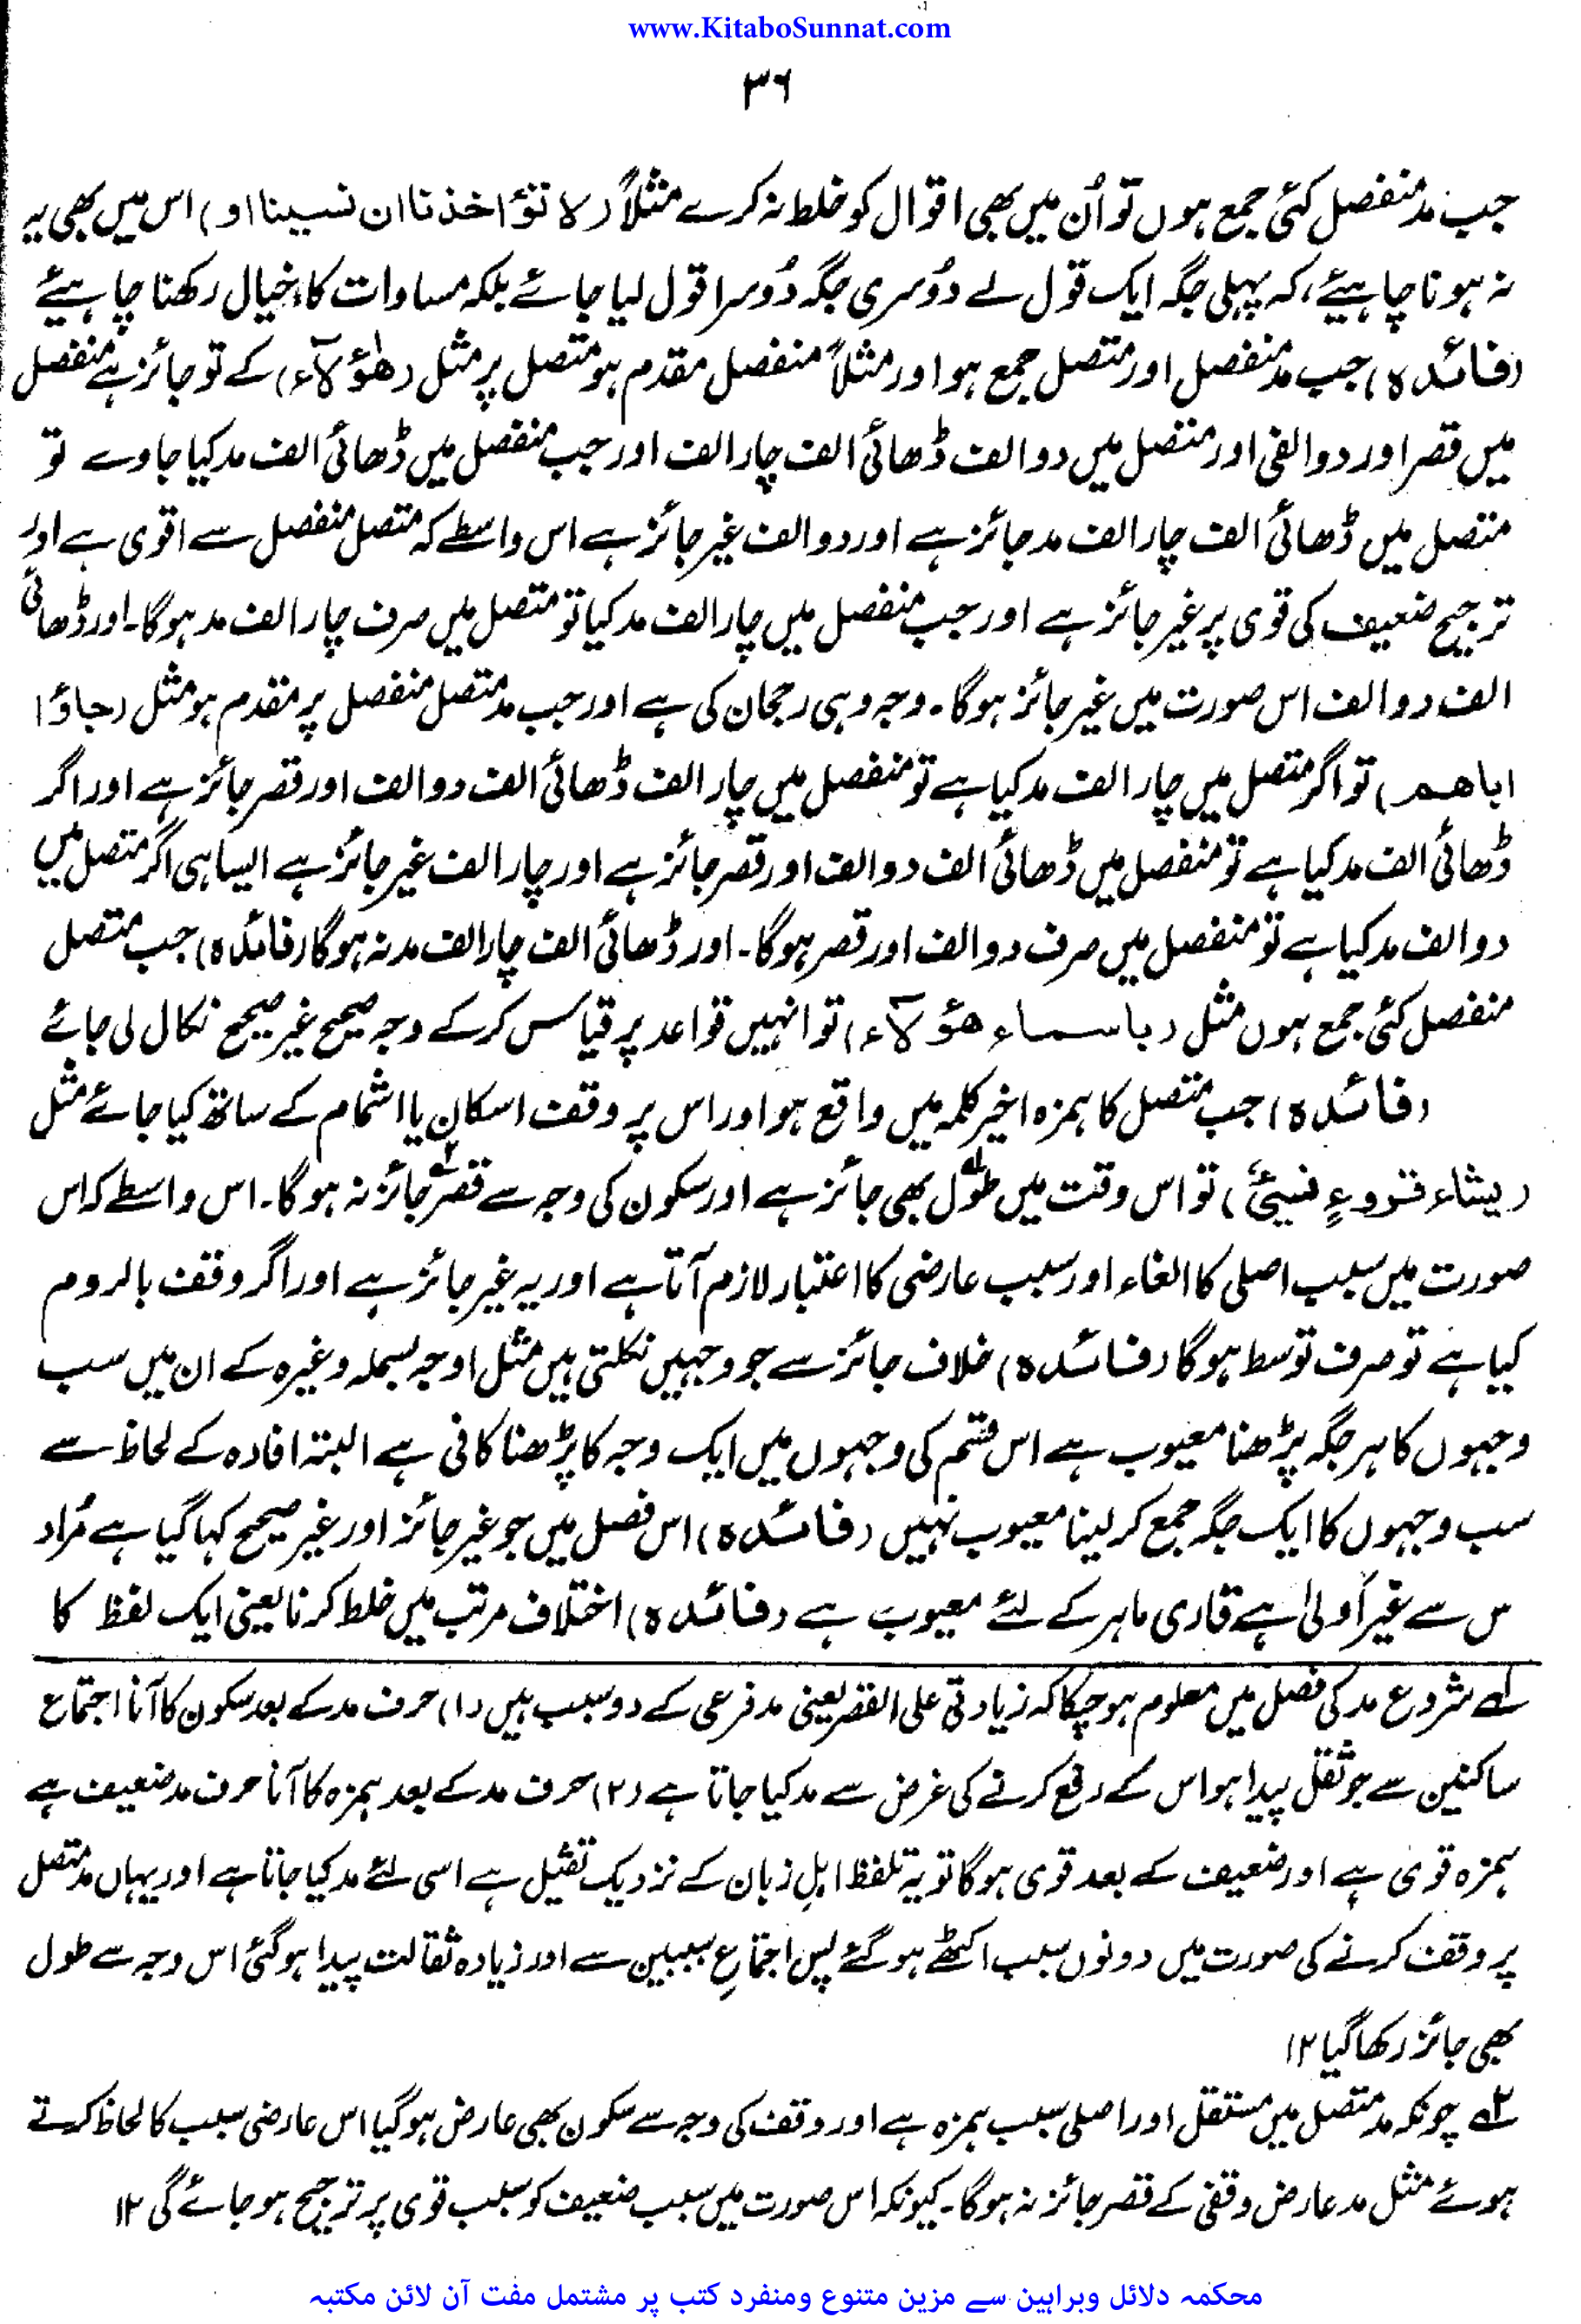 www.KitaboSunnat.com
۳۶
جب مد منفصل کئی جمع ہوں تو اُن میں بھی اقوال کو خلط نہ کرے مثلاً (لا تؤاخذنا ان نسینا او) اس میں بھی یہ
نہ ہونا چاہیئے، کہ پہلی جگہ ایک قول لے دُوسری جگہ دُوسرا قول لیا جائے بلکہ مساوات کا خیال رکھنا چاہیئے
(فائدہ) جب مد منفصل اور متصل جمع ہو اور مثلاً منفصل مقدم ہو متصل پر مثل (هٰؤلآء) کے تو جائز ہے منفصل
میں قصر اور دو الفی اور متصل میں دو الف ڈھائی الف چار الف اور جب منفصل میں ڈھائی الف مد کیا جاوے تو
متصل میں ڈھائی الف چار الف مد جائز ہے اور دو الف غیر جائز ہے اس واسطے کہ متصل منفصل سے اقوی ہے اور
ترجیح ضعیف کی قوی پر غیر جائز ہے اور جب منفصل میں چار الف مد کیا تو متصل میں صرف چار الف مد ہوگا۔ اور ڈھائی
الف دو الف اس صورت میں غیر جائز ہوگا۔ وجہ وہی رجحان کی ہے اور جب مد متصل منفصل پر مقدم ہو مثل (جاؤا
اباهم) تو اگر متصل میں چار الف مد کیا ہے تو منفصل میں چار الف ڈھائی الف دو الف اور قصر جائز ہے اور اگر
ڈھائی الف مد کیا ہے تو منفصل میں ڈھائی الف دو الف اور قصر جائز ہے اور چار الف غیر جائز ہے ایسا ہی اگر متصل میں
دو الف مد کیا ہے تو منفصل میں صرف دو الف اور قصر ہوگا۔ اور ڈھائی الف چار الف مد نہ ہوگا (فائدہ) جب متصل
منفصل کئی جمع ہوں مثل (باسماء هؤلآء) تو انہیں قواعد پر قیاس کرکے وجہ صحیح غیر صحیح نکال لی جائے
(فائدہ) جب متصل کا ہمزہ اخیر کلمہ میں واقع ہو اور اس پر وقف اسکان یا اشمام کے ساتھ کیا جائے مثل
(یشاء قروءٍ نسیئُ) تو اس وقت میں طول ۱؎ بھی جائز ہے اور سکون کی وجہ سے قصر ۲؎ جائز نہ ہوگا۔ اس واسطے کہ اس
صورت میں سبب اصلی کا الغاء اور سبب عارضی کا اعتبار لازم آتا ہے اور یہ غیر جائز ہے اور اگر وقف بالروم
کیا ہے تو صرف توسط ہوگا (فائدہ) خلاف جائز سے جو وجہیں نکلتی ہیں مثل اوجہ بسملہ وغیرہ کے ان میں سب
وجہوں کا ہر جگہ پڑھنا معیوب ہے اس قسم کی وجہوں میں ایک وجہ کا پڑھنا کافی ہے البتہ افادہ کے لحاظ سے
سب وجہوں کا ایک جگہ جمع کر لینا معیوب نہیں (فائدہ) اس فصل میں جو غیر جائز اور غیر صحیح کہا گیا ہے مُراد
س سے غیر اَولیٰ ہے قاری ماہر کے لئے معیوب ہے (فائدہ) اختلاف مرتب میں خلط کرنا یعنی ایک لفظ کا
۱؎ شروع مد کی فصل میں معلوم ہوچکا کہ زیادتی علی القصر یعنی مد فرعی کے دو سبب ہیں (۱) حرف مد کے بعد سکون کا آنا اجتماع
ساکنین سے جو ثقل پیدا ہو اس کے رفع کرنے کی غرض سے مد کیا جاتا ہے (۲) حرف مد کے بعد ہمزہ کا آنا حرف مد ضعیف ہے
ہمزہ قوی ہے اور ضعیف کے بعد قوی ہوگا تو یہ تلفظ اہلِ زبان کے نزدیک ثقیل ہے اسی لئے مد کیا جاتا ہے اور یہاں مد متصل
پر وقف کرنے کی صورت میں دونوں سبب اکٹھے ہوگئے پس اجتماعِ سببین سے اور زیادہ ثقالت پیدا ہوگئی اس وجہ سے طول
بھی جائز رکھا گیا ۱۲
۲؎ چونکہ مد متصل میں مستقل اور اصلی سبب ہمزہ ہے اور وقف کی وجہ سے سکون بھی عارض ہوگیا اس عارضی سبب کا لحاظ کرتے
ہوئے مثل مد عارض وقفی کے قصر جائز نہ ہوگا۔ کیونکہ اس صورت میں سبب ضعیف کو سبب قوی پر ترجیح ہو جائے گی ۱۲
محکمہ دلائل وبراہین سے مزین متنوع ومنفرد کتب پر مشتمل مفت آن لائن مکتبہ